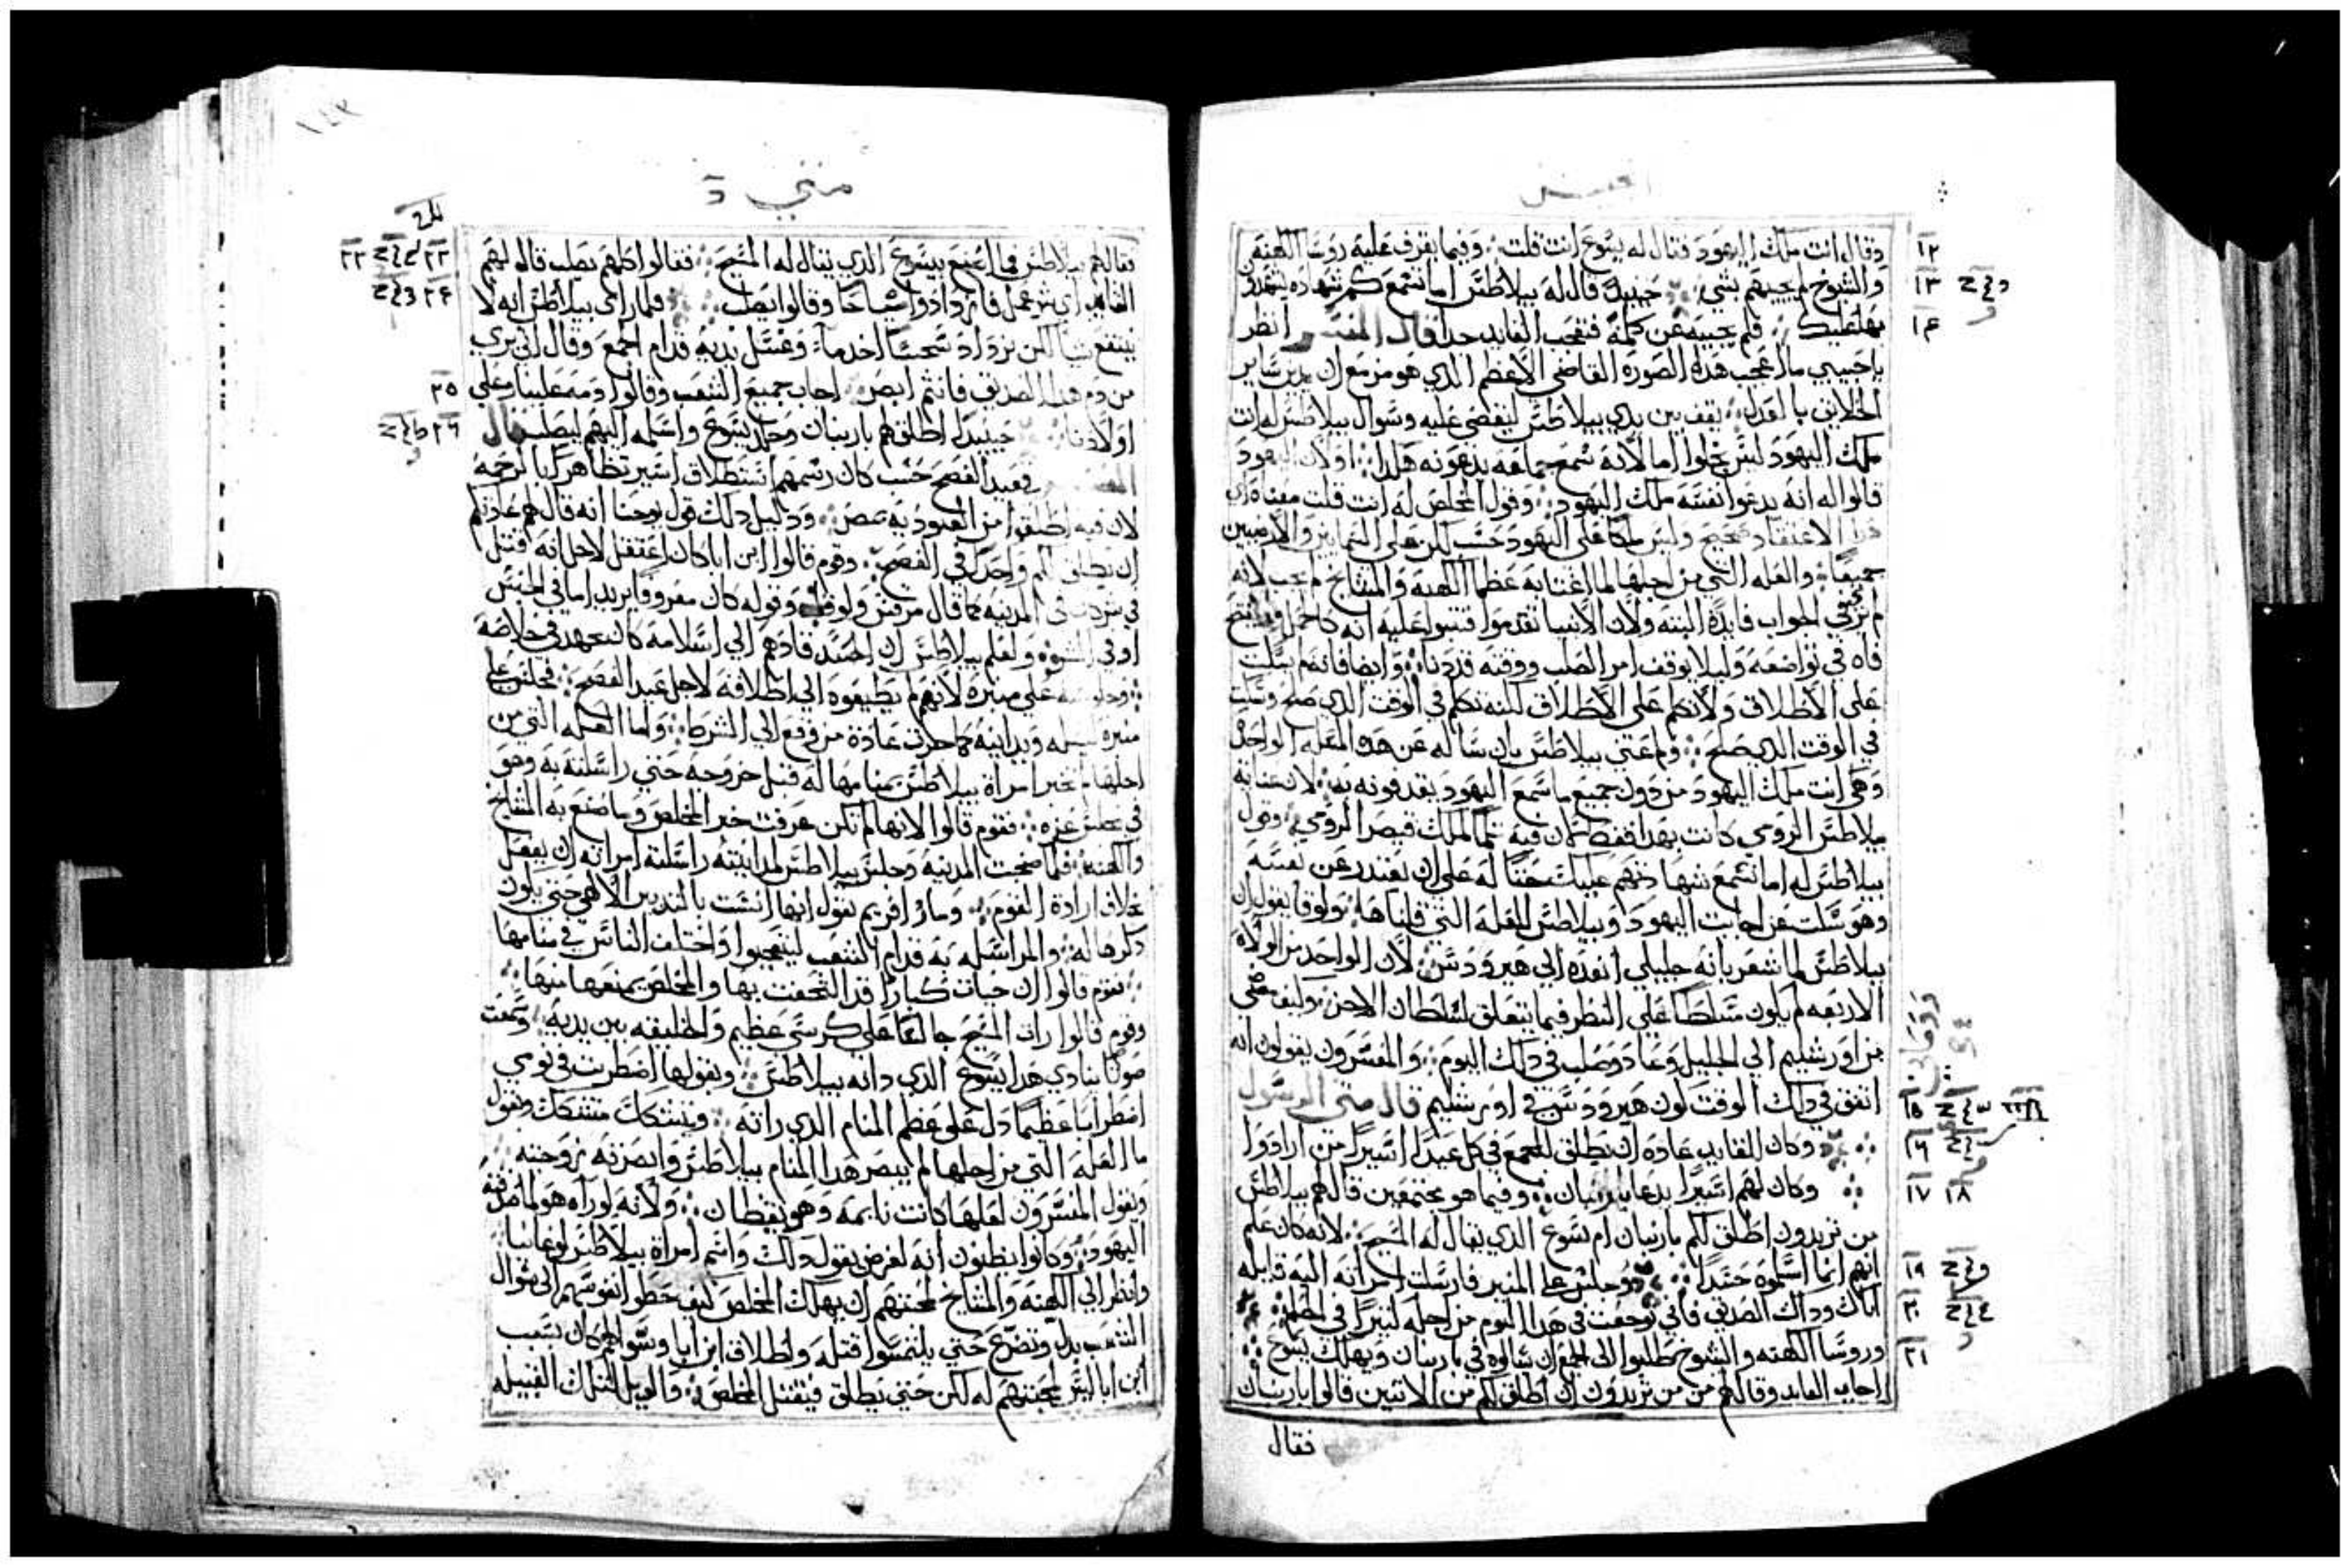 وقال انت ملك اليهود فقال له يسوع انت قلت وفيما يقرف عليه روسا الكهنة
والشيوخ لم يجيبهم بشي حينيذ قال له بيلاطس اما تسمع كم شهاده يشهدوا
بها عليك فلم يجيبه عن كلمة فتعجب القايد جدا قال المفسر انظر
يا حبيبي ما اعجب هذه الصورة القاضي الاعظم الذي هو مزمع ان يدين ساير
الخلايق بالعدل يقف بين يدي بيلاطس ليقضي عليه وسوال بيلاطس له انت
ملك اليهود ليس يخلوا اما لانه سمع جماعه يدعونه هكذا او لان اليهود
قالوا له انه يدعوا نفسه ملك اليهود وقول المخلص له انت قلت معناه اي
هذا الاعتقاد صحيح وليس ملكا على اليهود حسب لكن على السماين والارضيين
جميعا والعله التي من اجلها لما اغتابه عظما الكهنة والمشايخ لم يجب لانه
لم ير في الجواب فايدة البتة ولان الانبيا تقدموا فتنبوا عليه انه كالحمل
فاه في تواضعه وليلا يوقف امر الصلب ووقته قد دنا وايضا فانه لم يسكت
على الاطلاق ولا تكلم على الاطلاق لكنه تكلم في الوقت الذي صلح وسكت
في الوقت الذي صلح ولم اعتني بيلاطس بان ساله عن هذه العله الواحدة
وهي انت ملك اليهود من دون جميع ما سمع اليهود يقدفونه به لان عنايه
بيلاطس الرومي كانت بهذا فقط لان فيه تملك قيصر الرومي وقول
بيلاطس له اما تسمع شهادتهم عليك حثا له على ان يعتذر عن نفسه
وهو سكت عن اجابت اليهود وبيلاطس للعله التي قلناها ولوقا يقول ان
بيلاطس لما شعر بانه جليلي انفده الى هيرودس لان الواحد من الولاه
الاربعه لم يكون متسلطا على النظر فيما يتعلق بسلطان الاخر وكيف مضى
من اورشليم الي الجليل وعاد وصلب في ذلك اليوم والمفسرون يقولون انه
اتفق في ذلك الوقت كون هيرودس في اورشليم قال متى الرسول
وكان للقايد عاده ان يطلق للجمع في كل عيد اسيرا من ارادوا
وكان لهم اسيرا يدعا باربنان وفيما هو مجتمعين قال لهم بيلاطس
من تريدون اطلق لكم باربنان ام يسوع الذي يقال له المسيح لانه كان علم
انهم انما اسلموه حسدا وجلس على المنبر فارسلت امرأته اليه قايله
اياك وذاك الصديق فاني توجعت في هذا اليوم من اجله كثيرا في الحلم
وروسا الكهنه والشيوخ طلبوا الى الجمع ان يسالوه في باربنان ويهلك يسوع
اجاب القايد وقال لهم من من تريدون ان اطلق لكم من الاتنين قالوا باربنان
فقال
١٢
١٣
١٤
١٥
١٦
١٧ ١٨
١٩
٢٠
٢١
١٤٣
متي
فقال لهم بيلاطس فما اصنع بيسوع الذي يقال له المسيح فقالوا كلهم يصلب قال لهم
القايد اي شر عمل فازدادوا صياحا وقالوا يصلب فلما راى بيلاطس انه لا
ينتفع شيا لكن يزداد سجسا اخد ماء وغسل يديه قدام الجمع وقال اني بري
من دم هذا الصديق فانتم ابصر اجاب جميع الشعب وقالوا دمه علينا وعلي
اولادنا حينيذ اطلق لهم باربنان وجلد يسوع واسلمه اليهم ليصلب قال
المفسر في عيد الفصح حسب كان رسمهم استطلاق اسير تظاهرا بالرحمه
لان فيه اطلقوا من عبودية مصر ودليل ذلك قول يوحنا انه قال لهم عادتكم
ان يطلق لكم واحد في الفصح وقوم قالوا ابن ابا كان اعتقل لاجل انه قتل
في المدينه كما قال مرقس ولوقا وقوله كان معروفا يريد اما في الحبس
او في ولعلم بيلاطس ان الحسد قادهم الي اسلامه كان يتعهد في خلاصه
وجلوسه على منبره لانهم لم يطيعوه الى اطلاقه لاجل عيد الفصح فجلس على
منبره كما جرت عادة من وقع الي الشرط واما العله التي من
اجلها لم تخبر امراة بيلاطس بمنامها له قبل خروجه حتي راسلته به وهو
في مجلس عزه فقوم قالوا لانها لم تكن عرفت خبر المخلص وما صنع به المشايخ
والكهنه فلما ضجت المدينه وجلس بيلاطس راسلته امراته ان يفعل
بخلاف ارادة القوم ومار افريم يقول انها انسيت بالتدبير الالهي حتي يكون
ذكرها له والمراسله به قدام الشعب ليتعجبوا واختلف الناس في منامها
فقوم قالوا ان حيات كبارا قد التحفت بها والمخلص يمنعها منها
وقوم قالوا رات المسيح جالسا على كرسي عظيم والخليقه بين يديه وسمعت
صوتا ينادي هذا يسوع الذي دانه بيلاطس وبقولها اضطربت في نومي
اضطرابا عظيما دل على عظم المنام الذي راته ويتشكك متشكك ويقول
ما العله التي من اجلها لم يبصر هذا المنام بيلاطس وابصرته زوجته
ويقول المفسرون لعلها كانت نايمه وهو يقظان ولانه لو راه هو لما صدقته
اليهود وكانوا يظنون انه لغرض يقول ذلك واسم امراة بيلاطس
وانظر الى الكهنه والمشايخ لمحبتهم ان يهلك المخلص كيف حطوا نفوسهم الى سوال
الشعب بذل وتضرع حتي يلتمسوا قتله واطلاق ابن ابا وسوالهم كان بسبب
ابن ابا ليس لمحبتهم له لكن حتي يطلق فيقتل المخلص لتلك القبيله
٢٢
٢٣
٢٤
٢٥
٢٦